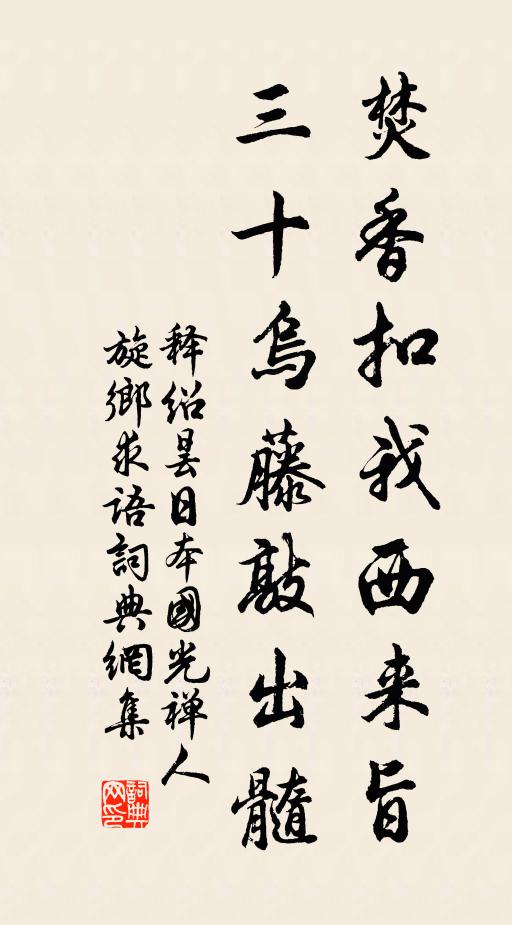 焚香扣我西来旨
三十烏藤敲出髓
释绍昙日本國光禅人
旋鄉求语詞典網集
詞典网印